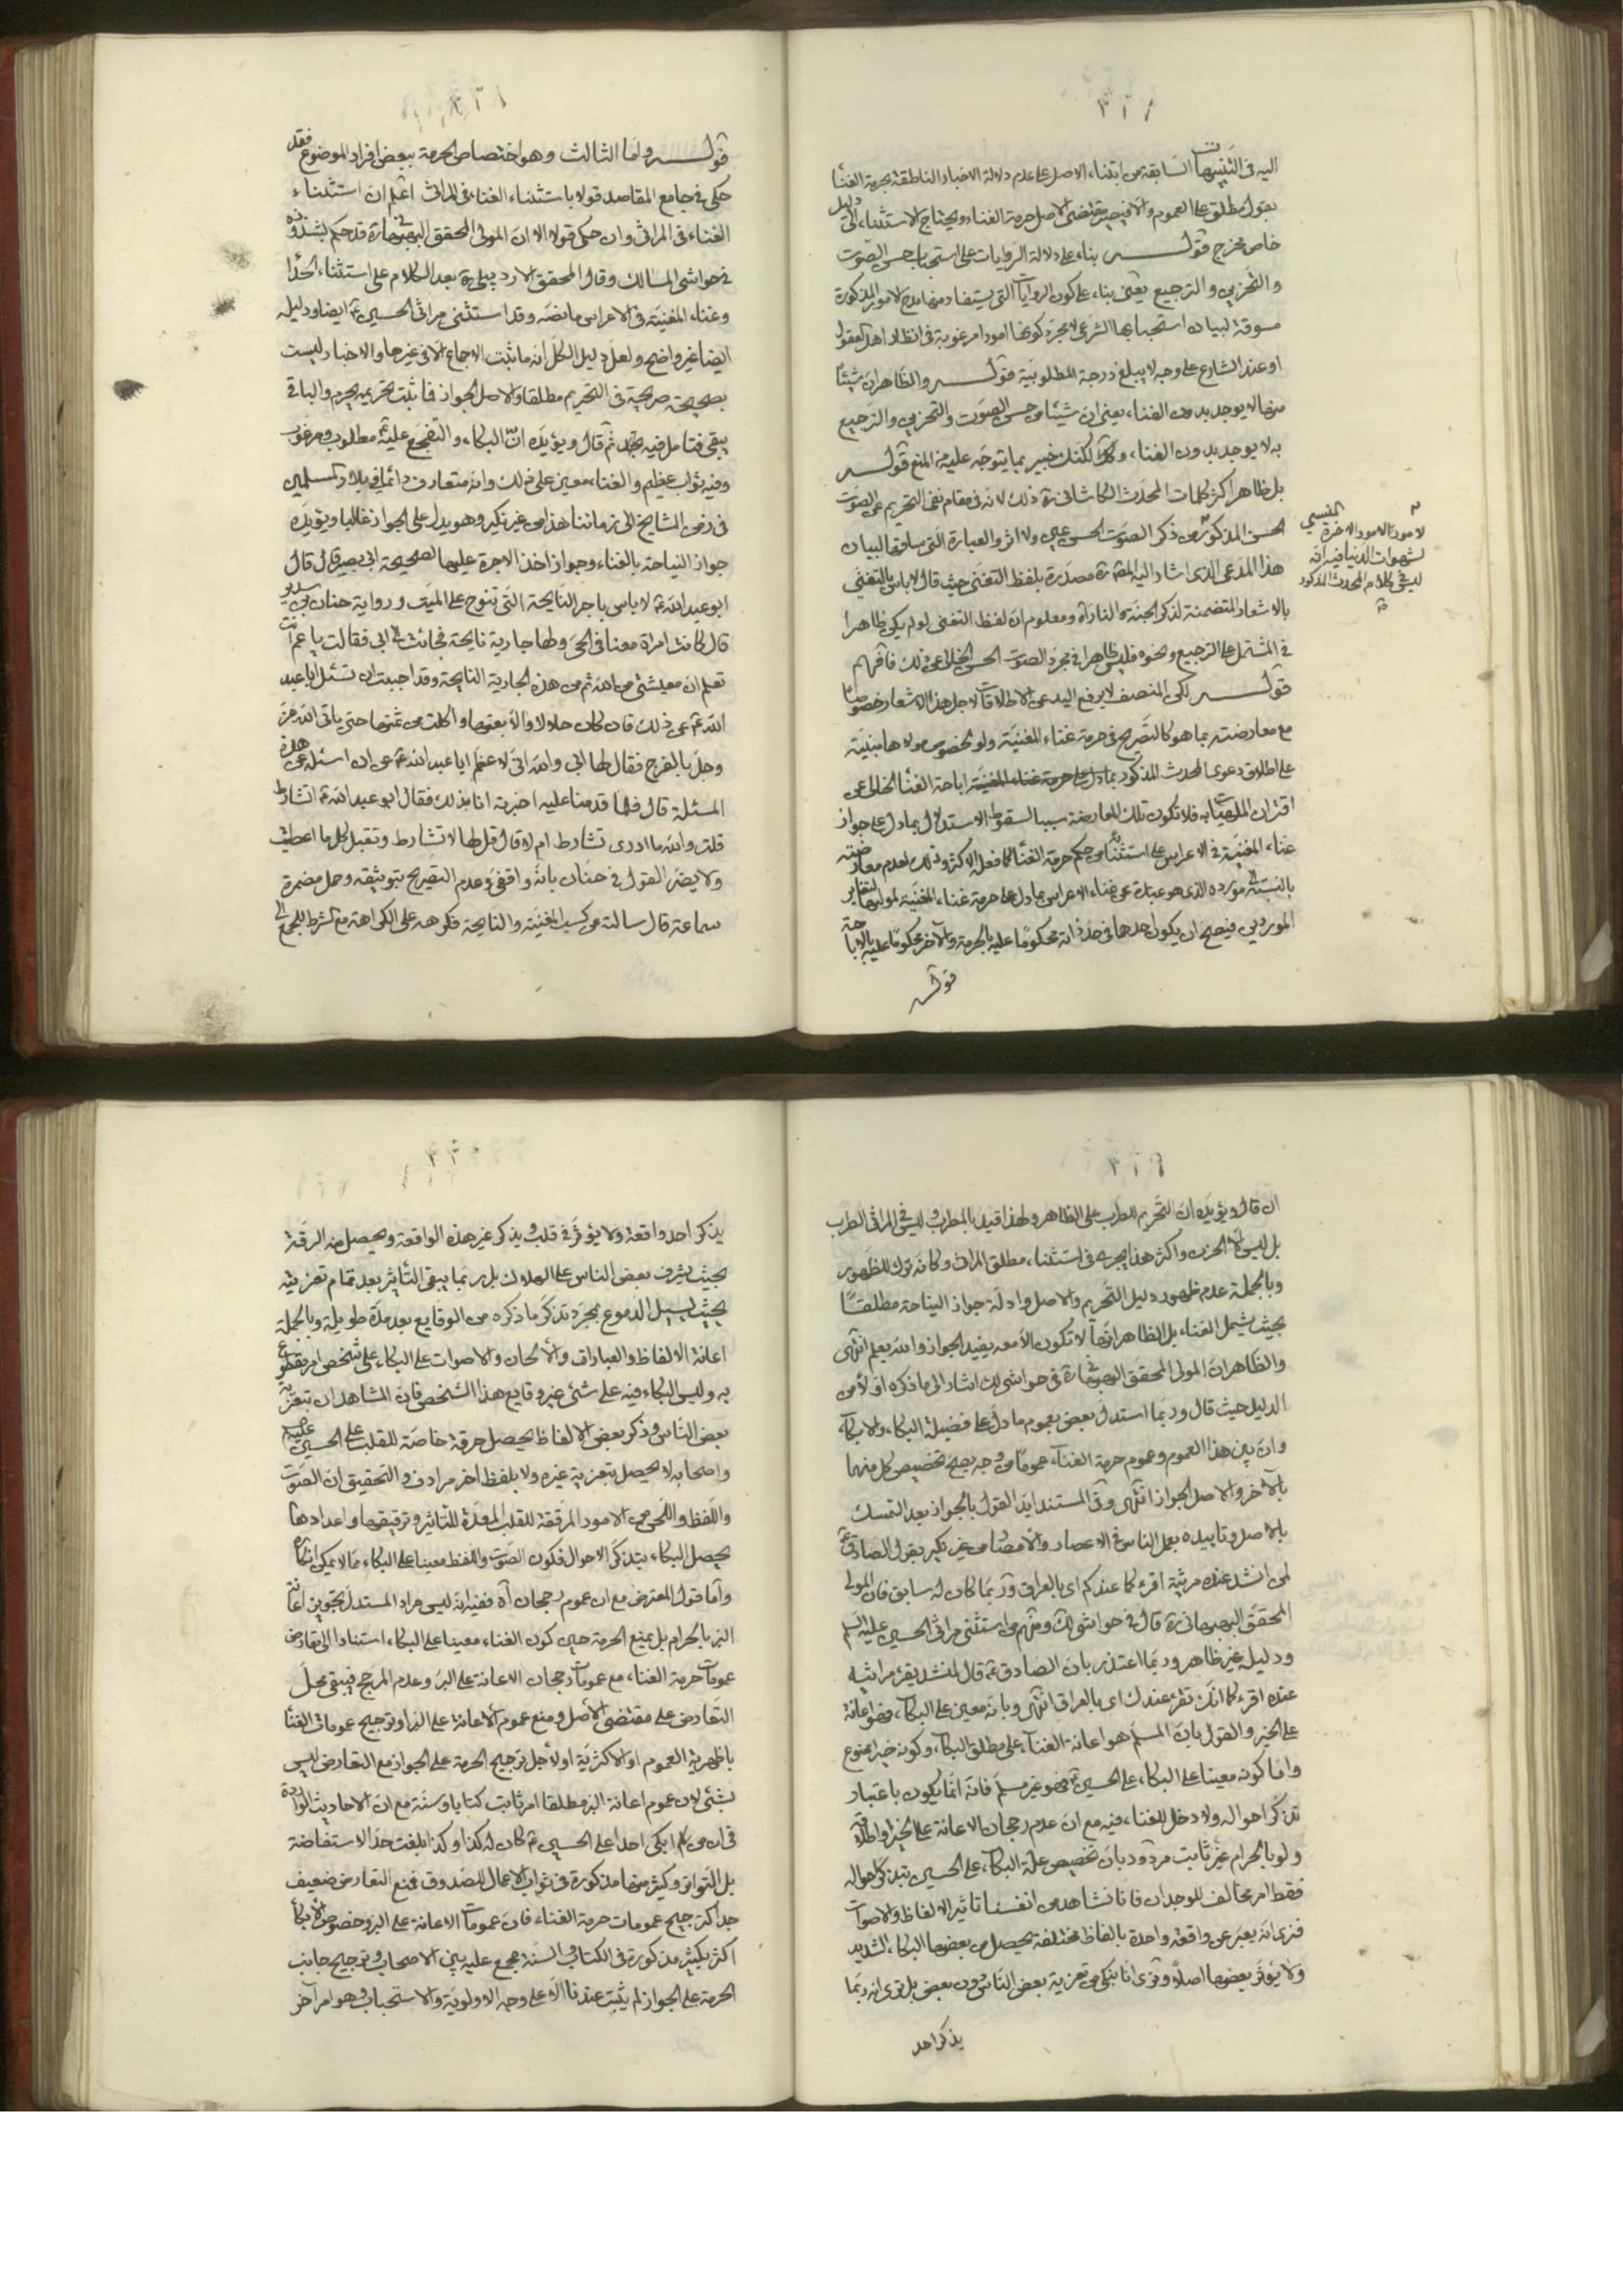 اليه فى التنبيهات السابقة من ابتناء الاصل على عدم دلالة الاخبار الناطقة بحرمة الغنا
بقول مطلق على العموم والا فيصير مقتضى الاصل حرمة الغناء ويحتاج الاستثناء الى دليل
خاص مخرج قولـــه بناء على دلالة الروايات على استحباب حسن الصوت
والتحزين والترجيع يعنى بناء على كون الروايات التى يستفاد منها مدح الامور المذكورة
مسوقة لبيان استحبابها الشرعى لا مجرد كونها امورا مرغوبة فى انظار اهل العقول
او عند الشارع على وجه لا يبلغ درجة المطلوبية قولـــه والظاهر ان شيئا
منها لا يوجد بدون الغناء يعنى ان شيئا من حسن الصوت والتحزين والترجيع
به لا يوجد بدون الغناء لكنك خبير بما يتوجه عليه من المنع قولـــه
بل ظاهر اكثر كلمات المحدث الكاشانى ره ذلك لانه فى مقام نفى التحريم عن الصوت
الحسن المذكور من ذكر الصوت الحسن والعبارة التى ساقها لبيان
هذا المدعى الذى اشار اليه المص ره مصدرة بلفظ التغنى حيث قال لا باس بالتغنى
بالاشعار المتضمنة لذكر الجنة والنار اه ومعلوم ان لفظ التغنى لو لم يكن ظاهرا
فى المشتمل على الترجيع ونحوه فليس ظاهرا فى مجرد الصوت الحسن الخالى عن ذلك فافهم
قولـــه لكن المنصف لا يرفع اليد عن الاطلاقات لاجل هذا الاشعار خصوصا
مع معارضته بما هو كالتصريح فى حرمة غناء المغنية ولو لخصوص مولاها مبنية
على اطلاق دعوى المحدث المذكور اباحة الغنا الخالى عن
اقتران الملهيات به فلا تكون تلك المعارضة سببا لسقوط الاستدلال بما دل على جواز
غناء المغنية فى الاعراس على استثنائه من حكم حرمة الغنا كما فعله الاكثر وذلك لعدم معارضته
بالنسبة الى مورده الذى هو عبارة عن غناء الاعراس بما دل على حرمة غناء المغنية لمولاها لتغاير
الموردين فيصح ان يكون احدهما فى حد ذاته محكوما عليه بالحرمة والاخر محكوما عليه بالاباحة
قولـــه
لامور الامور الاخرة
لشهوات الدنيا فيه انه
ليس فى كلام المحدث المذكور
قولـــه واما الثالث وهو اختصاص الحرمة ببعض افراد الموضوع فقد
حكى فى جامع المقاصد قولا باستثناء الغناء فى المراثى اعلم ان استثناء
الغناء فى المراثى وان حكى قولا الا ان المولى المحقق البهبهانى ره قد حكم بشذوذه
فى حواشى المسالك وقال المحقق الاردبيلى ره بعد الكلام على استثناء الحدا
وغناء المغنية فى الاعراس ما نصه وقد استثنى مراثى الحسين ع ايضا ودليله
ايضا غير واضح ولعل دليل الكل انه ما ثبت الاجماع الا فى غيرها والاخبار ليست
بصحيحة صريحة فى التحريم مطلقا والاصل الجواز فما ثبت تحريمه يحرم والباقى
يبقى فتامل فيه ثم قال ويؤيده ان البكاء والتفجع عليه ع مطلوب ومرغوب
وفيه ثواب عظيم والغناء معين على ذلك وانه متعارف دائما فى بلاد المسلمين
فى زمن المشايخ الى زماننا هذا من غير نكير وهو يدل على الجواز غالبا ويؤيده
جواز النياحة بالغناء وجواز اخذ الاجرة عليها لصحيحة ابى بصير قال قال
ابو عبد الله ع لا باس باجر النايحة التى تنوح على الميت ورواية حنان بن سدير
قال كانت امراة معنا فى الحى ولها جارية نايحة فجائت الى ابى فقالت يا عم انت
تعلم ان معيشتى من الله ثم من هذه الجارية النايحة وقد احببت ان تسئل ابا عبد
الله ع عن ذلك فان كان حلالا والا بعتها واكلت من ثمنها حتى ياتى الله عز
وجل بالفرج فقال لها ابى والله انى لاعظم ابا عبد الله ع ان اسئله عن هذه
المسئلة قال فلما قدمنا عليه اخبرته انا بذلك فقال ابو عبد الله ع اتشارط
قلت والله ما ادرى تشارط ام لا قال قل لها لا تشارط وتقبل كل ما اعطيت
ولا يضر القول فى حنان بانه واقفى وعدم التصريح بتوثيقه وحمل مضمرة
سماعة قال سالته عن كسب المغنية والنايحة فكرهه على الكراهة مع الشرط للجمع الى
ان قال ويؤيده ان التحريم للطرب على الظاهر ولهذا قيد بالمطرب وليس فى المراثى الطرب
بل ليس الا الحزن واكثر هذا يجرى فى استثناء مطلق المراثى وكانه ترك للظهور
وبالجملة عدم ظهور دليل التحريم والاصل وادلة جواز النياحة مطلقا
بحيث يشمل الغناء بل الظاهر انها لا تكون الا معه يفيد الجواز والله يعلم انتهى
والظاهر ان المولى المحقق البهبهانى ره فى حواشى لك اشار الى ما ذكره اولا من
الدليل حيث قال وربما استدل بعض بعموم ما دل على فضيلة البكاء والابكاء
وان بين هذا العموم وعموم حرمة الغناء عموما من وجه يصح تخصيص كل منهما
بالاخر والاصل الجواز انتهى وفى المستند ايد القول بالجواز بعد التمسك
بالاصل وتاييده بعمل الناس فى الاعصار والامصار من غير نكير بقول الصادق ع
لمن انشد عنده مرثية اقرء كما عندكم اى بالعراق وربما كان له سابق فان المولى
المحقق البهبهانى ره قال فى حواشى لك ومنهم من استثنى مراثى الحسين عليه السلم
ودليله غير ظاهر وربما اعتذر بان الصادق ع قال لمنشد يقرء مراثيه
عنده اقرء كما انك تقرء عندك اى بالعراق انتهى وبانه معين على البكاء فهو اعانة
على الخير والقول بان المسلم هو اعانة الغناء على مطلق البكاء وكونه خيرا ممنوع
واما كونه معينا على البكاء على الحسين ع فهو غير مسلم فانه انما يكون باعتبار
تذكر احواله ولا دخل للغناء فيه مع ان عدم رجحان الاعانة على الخير واطلاقه
ولو بالحرام غير ثابت مردود بان تخصيص علة البكاء على الحسين بتذكر احواله
فقط امر مخالف للوجدان فانا نشاهد من انفسنا تاثير الالفاظ والاصوات
فنرى انه يعبر عن واقعة واحدة بالفاظ مختلفة يحصل من بعضها البكاء الشديد
ولا يؤثر بعضها اصلا ونرى انا نبكى من تعزية بعض الناس دون بعض بل نرى انه ربما
يذكر احد
يذكر احد واقعة ولا يؤثر فى قلب ويذكر غير هذه الواقعة ويحصل منه الرقة
بحيث يشرف بعض الناس على الهلاك بل ربما يبقى التاثير بعد تمام تعزيته
بحيث يسيل الدموع بمجرد تذكر ما ذكره من الوقايع بعد مدة طويلة وبالجملة
اعانة الالفاظ والعبارات والالحان والاصوات على البكاء على شخص امر مقطوع
به وليس البكاء فيه على شئ غير وقايع هذا الشخص فان المشاهد ان بتعزية
بعض الناس وذكر بعض الالفاظ يحصل حرقة خاصة للقلب على الحسين عليه السلم
واصحابه لا يحصل بتعزية غيره ولا بلفظ اخر مرادف والتحقيق ان الصوت
واللفظ واللحن من الامور المرققة للقلب المعدة للتاثير وترقيقها واعدادها
يحصل البكاء بتذكر الاحوال فكون الصوت واللفظ معينا على البكاء مما لا يمكن انكاره
واما قول المعترض مع ان عموم رجحان اه ففيه انه ليس مراد المستدل تجويز اعانة
البر بالحرام بل يمنع الحرمة حين كون الغناء معينا على البكاء استنادا الى تعارض
عمومات حرمة الغناء مع عمومات رجحان الاعانة على البر وعدم المرجح فيبقى محل
التعارض على مقتضى الاصل ومنع عموم الاعانة على البر او ترجيح عمومات الغنا
باظهرية العموم او الاكثرية او لاجل ترجيح الحرمة على الجواز مع التعارض ليس
بشئ لان عموم اعانة البر مطلقا امر ثابت كتابا وسنة مع ان الاحاديث الواردة
فى ان من ابكى احدا على الحسين ع كان له كذا وكذا بلغت حد الاستفاضة
بل التواتر وكثير منها مذكورة فى ثواب الاعمال للصدوق فمنع التعارض ضعيف
جدا كترجيح عمومات حرمة الغناء فان عمومات الاعانة على البر وخصوص الابكاء
اكثر بكثير مذكورة فى الكتاب والسنة مجمع عليه بين الاصحاب وترجيح جانب
الحرمة على الجواز لم يثبت عندنا الا على وجه الاولوية والاستحباب وهو امر آخر